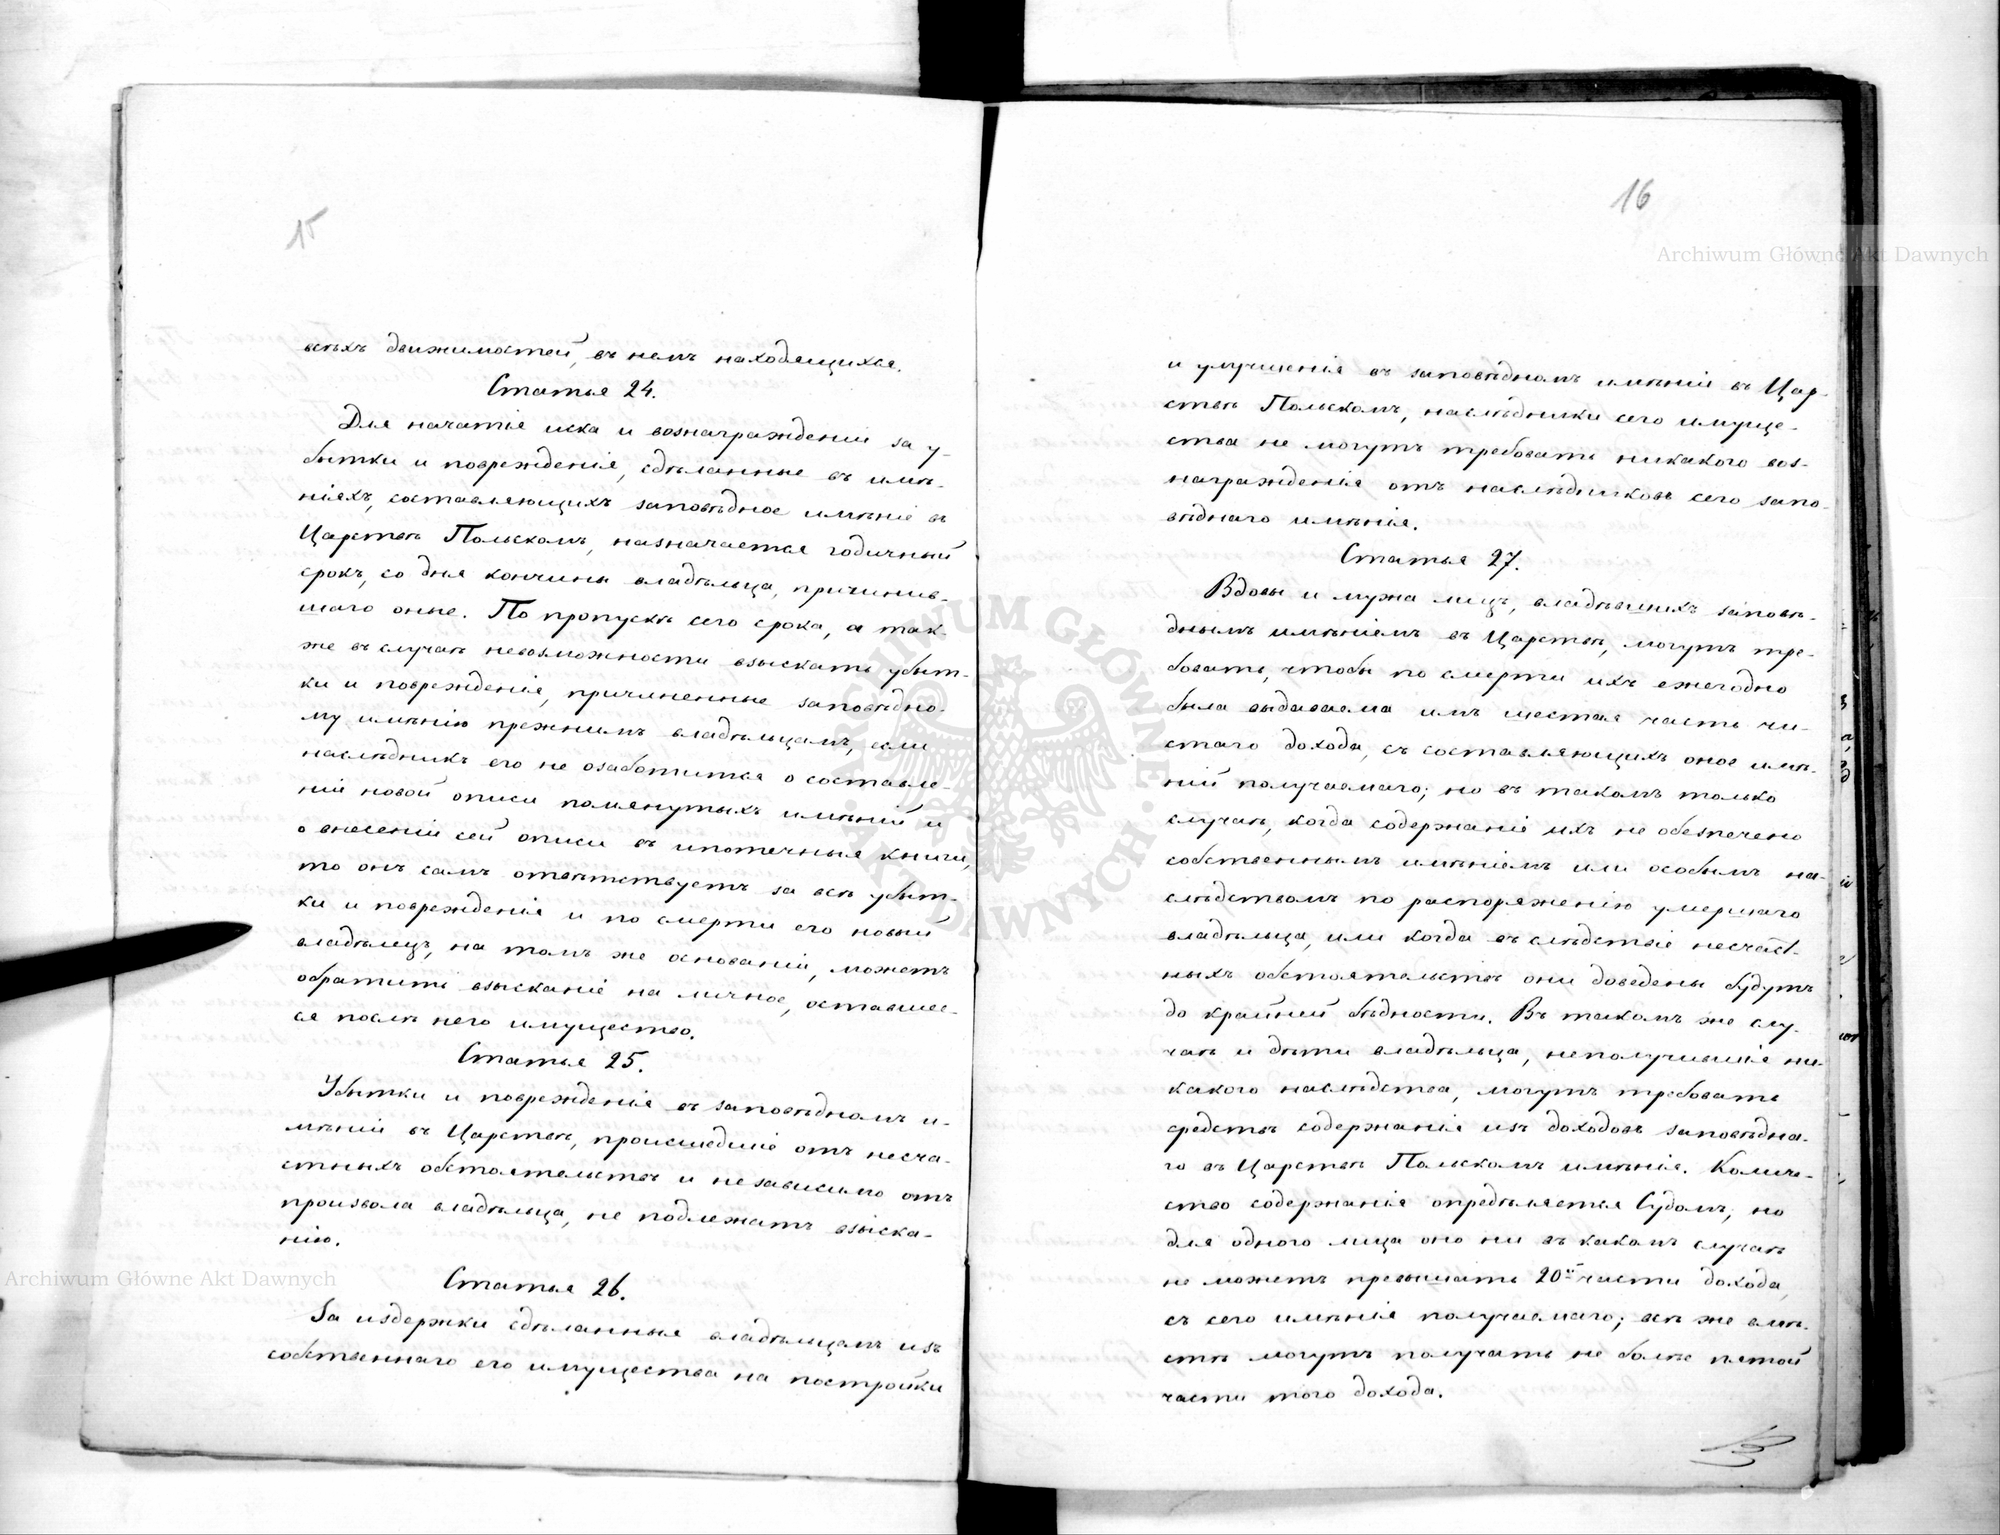 15
всѣхъ движимостей, въ немъ находящихся.
Статья 24.
Для начатія иска и вознагражденіи за у-
бытки и поврежденія, сдѣланные въ имѣ-
ніяхъ, составляющихъ заповѣдное имѣніе въ
Царствѣ Польскомъ, назначается годичный
срокъ, со дня кончины владѣльца, причинив-
шаго оные. По пропускѣ сего срока, а так-
же въ случаѣ невозможности взыскать убыт-
ки и поврежденія, причиненные заповѣдно-
му имѣнію прежнимъ владѣльцемъ, если
наслѣдникъ его не озаботится о составле-
ніи новой описи помянутыхъ имѣній и
о внесеніи сей описи въ ипотечныя книги,
то онъ самъ отвѣтствуетъ за всѣ убыт-
ки и поврежденія и по смерти его новый
владѣлецъ, на томъ же основаніи, можетъ
обратить взысканіе на личное, оставшее-
ся послѣ него имущество.
Статья 25.
Убытки и поврежденія въ заповѣдномъ и-
мѣніи въ Царствѣ, происшедшіе отъ несча-
стныхъ обстоятельствъ и независимо отъ
произвола владѣльца, не подлежатъ взыска-
нію.
Статья 26.
За издержки сдѣланныя владѣльцемъ изъ
собственнаго его имущества на постройки
16
и улучшенія въ заповѣдномъ имѣніи въ Цар-
ствѣ Польскомъ, наслѣдники сего имуще-
ства не могутъ требовать никакого воз-
награжденія отъ наслѣдниковъ сего запо-
вѣднаго имѣнія.
Статья 27.
Вдовы и мужа лицъ, владѣвшихъ заповѣ-
днымъ имѣніемъ въ Царствѣ, могутъ тре-
бовать, чтобы по смерти ихъ ежегодно
была выдаваема имъ шестая часть чи-
стаго дохода, съ составляющихъ оное имѣ-
ній получаемаго; но въ такомъ только
случаѣ, когда содержаніе ихъ не обезпечено
собственнымъ имѣніемъ или особымъ на-
слѣдствомъ по распоряженію умершаго
владѣльца, или когда въ слѣдствіе несчаст-
ныхъ обстоятельствъ они доведены будутъ
до крайней бѣдности. Въ такомъ же слу-
чаѣ и дѣти владѣльца, неполучившіе ни-
какого наслѣдства, могутъ требовать
средствъ содержанія изъ доходовъ заповѣдна-
го въ Царствѣ Польскомъ имѣнія. Количе-
ство содержанія опредѣляется Судомъ; но
для одного лица оно ни въ какомъ случаѣ
не можетъ превышать 20й части дохода,
съ сего имѣнія получаемаго; всѣ же вмѣ-
стѣ могутъ получать не болѣе пятой
части того дохода.
Archiwum Główne Akt Dawnych
Archiwum Główne Akt Dawnych
ARCHIWUM GŁÓWNE AKT DAWNYCH